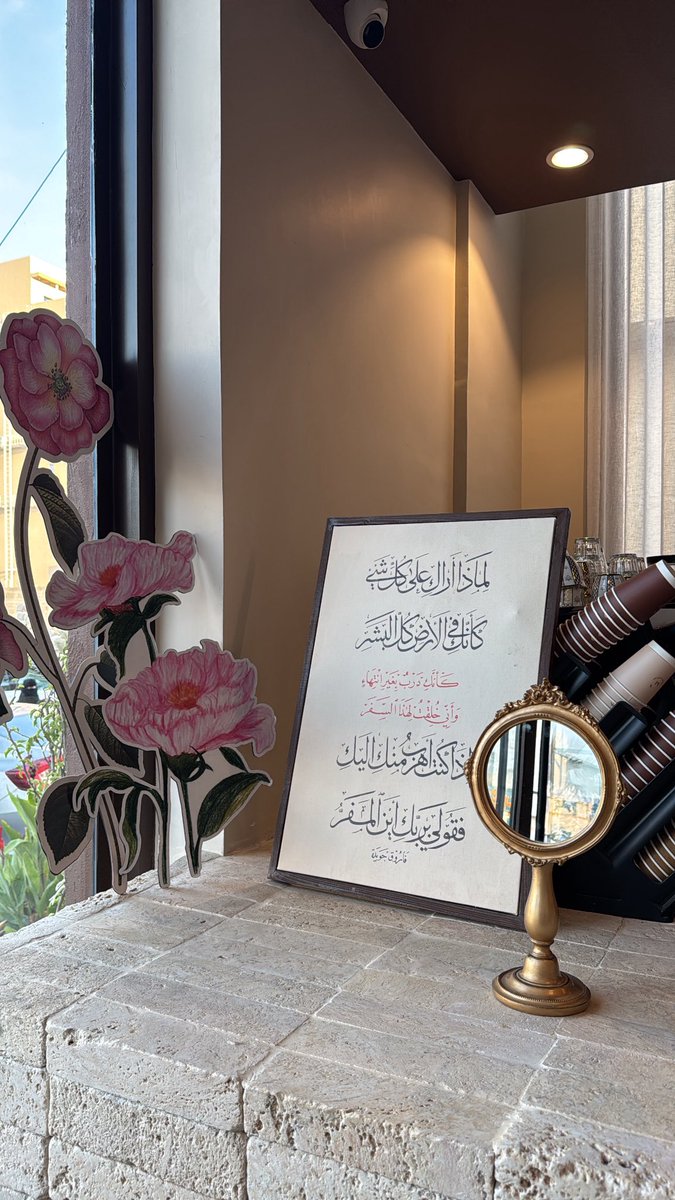 لماذا أراك على كل شيء
كأنك في الأرض كل البشر
كأنك درب بغير انتهاء
وأني خلقت لهذا السفر
كنت أهرب منك إليك
فقولي بربك أين المفر
فاروق جويدة